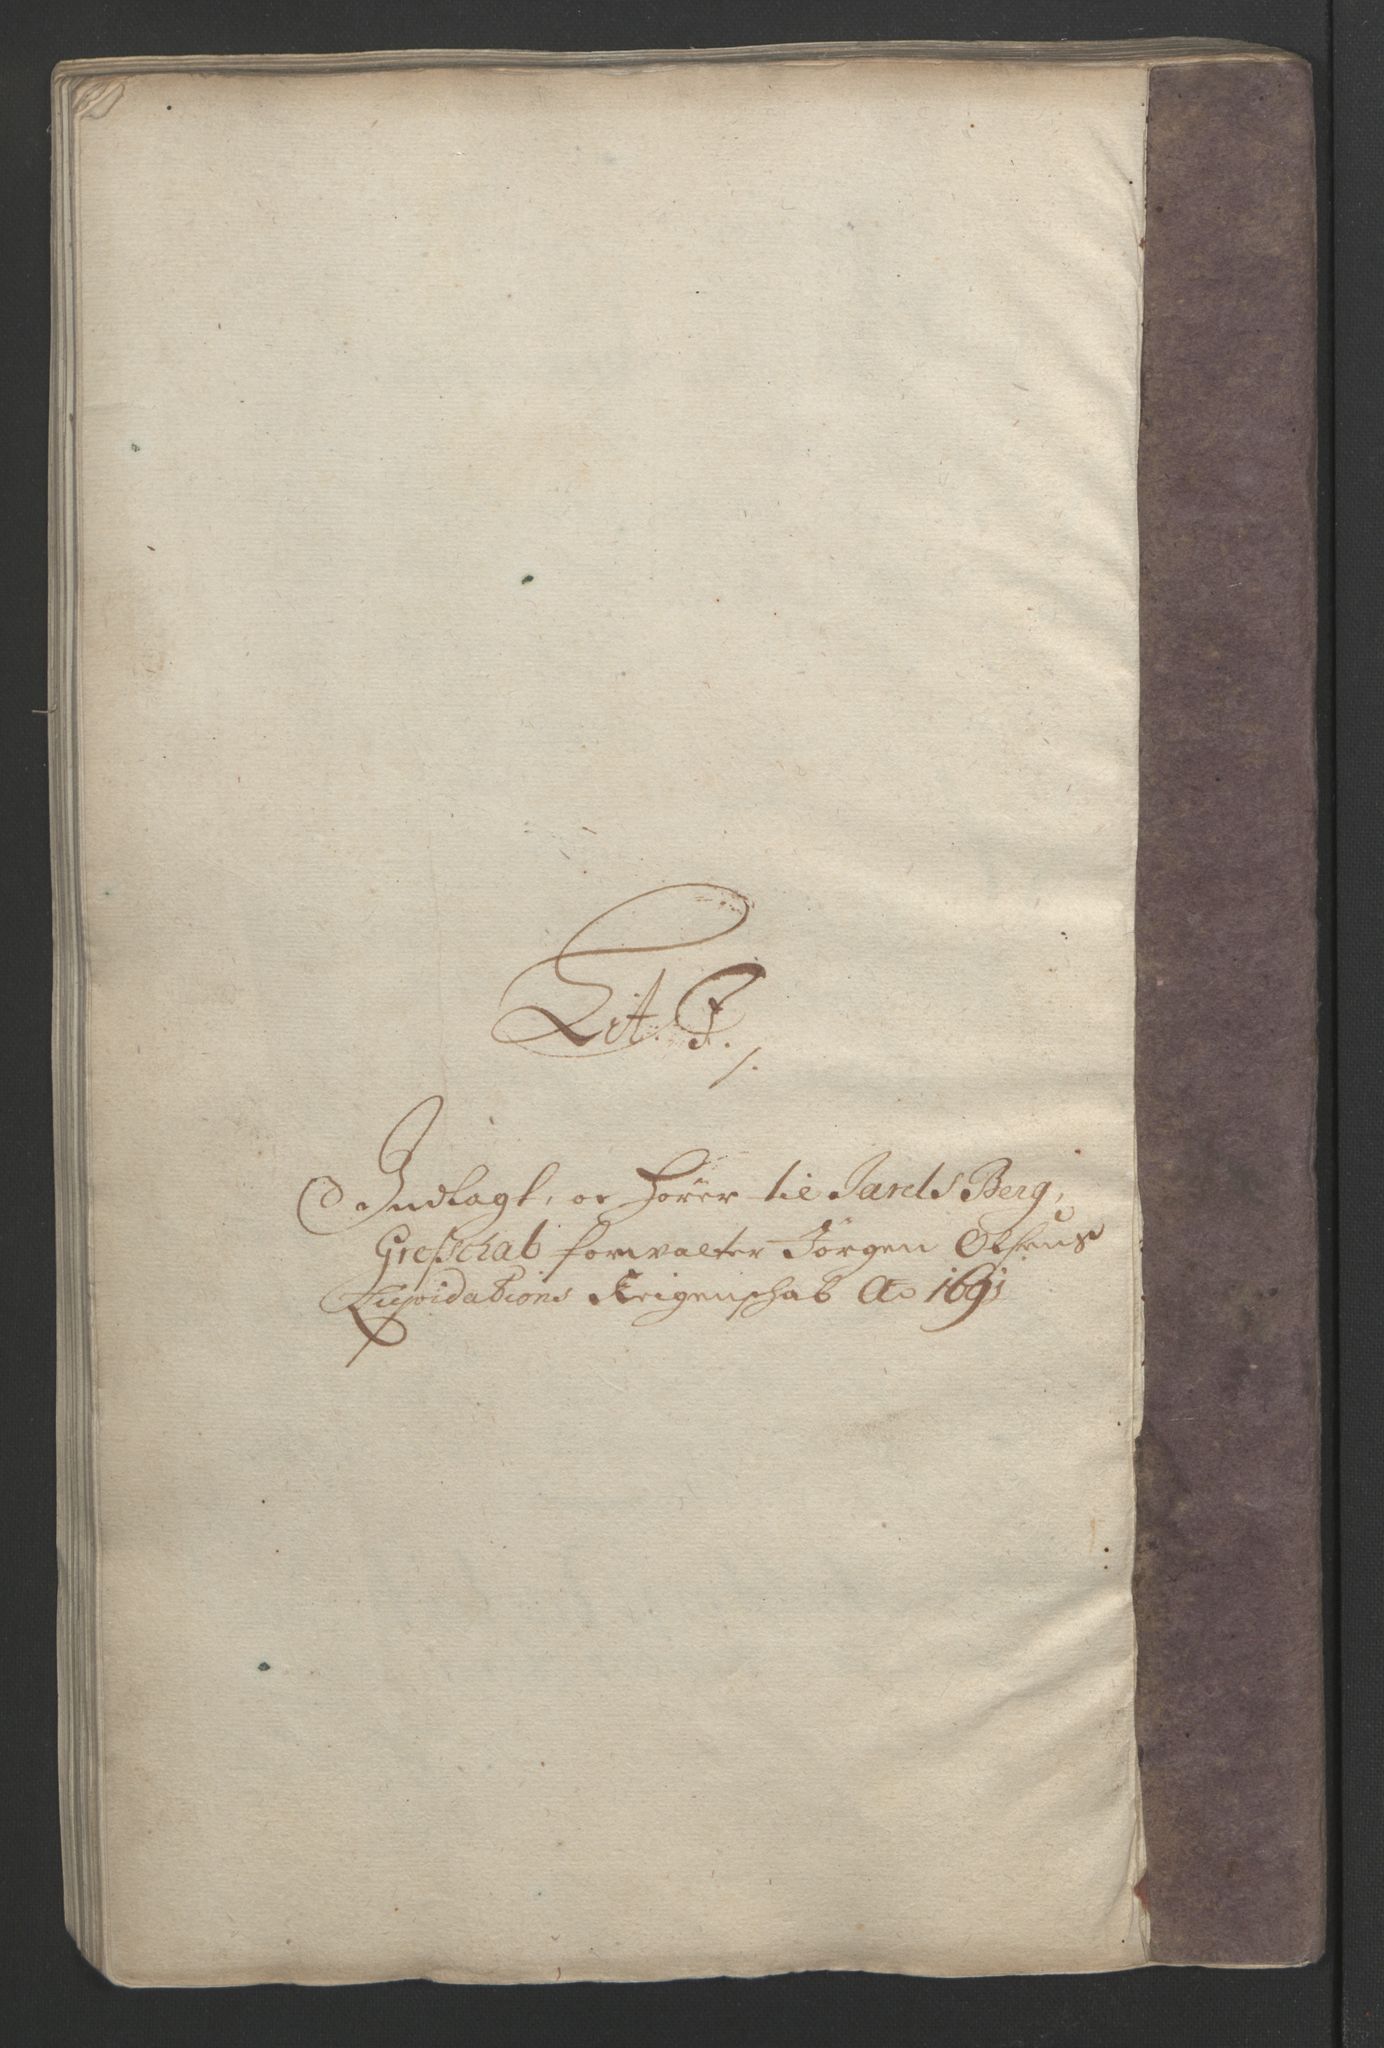 Lit. F.
Indlagt, oc hörer til Jarels Berg,
Grefschab forwalter Jörgen Olsens
Liqvidations Reigenschab Ao 1691